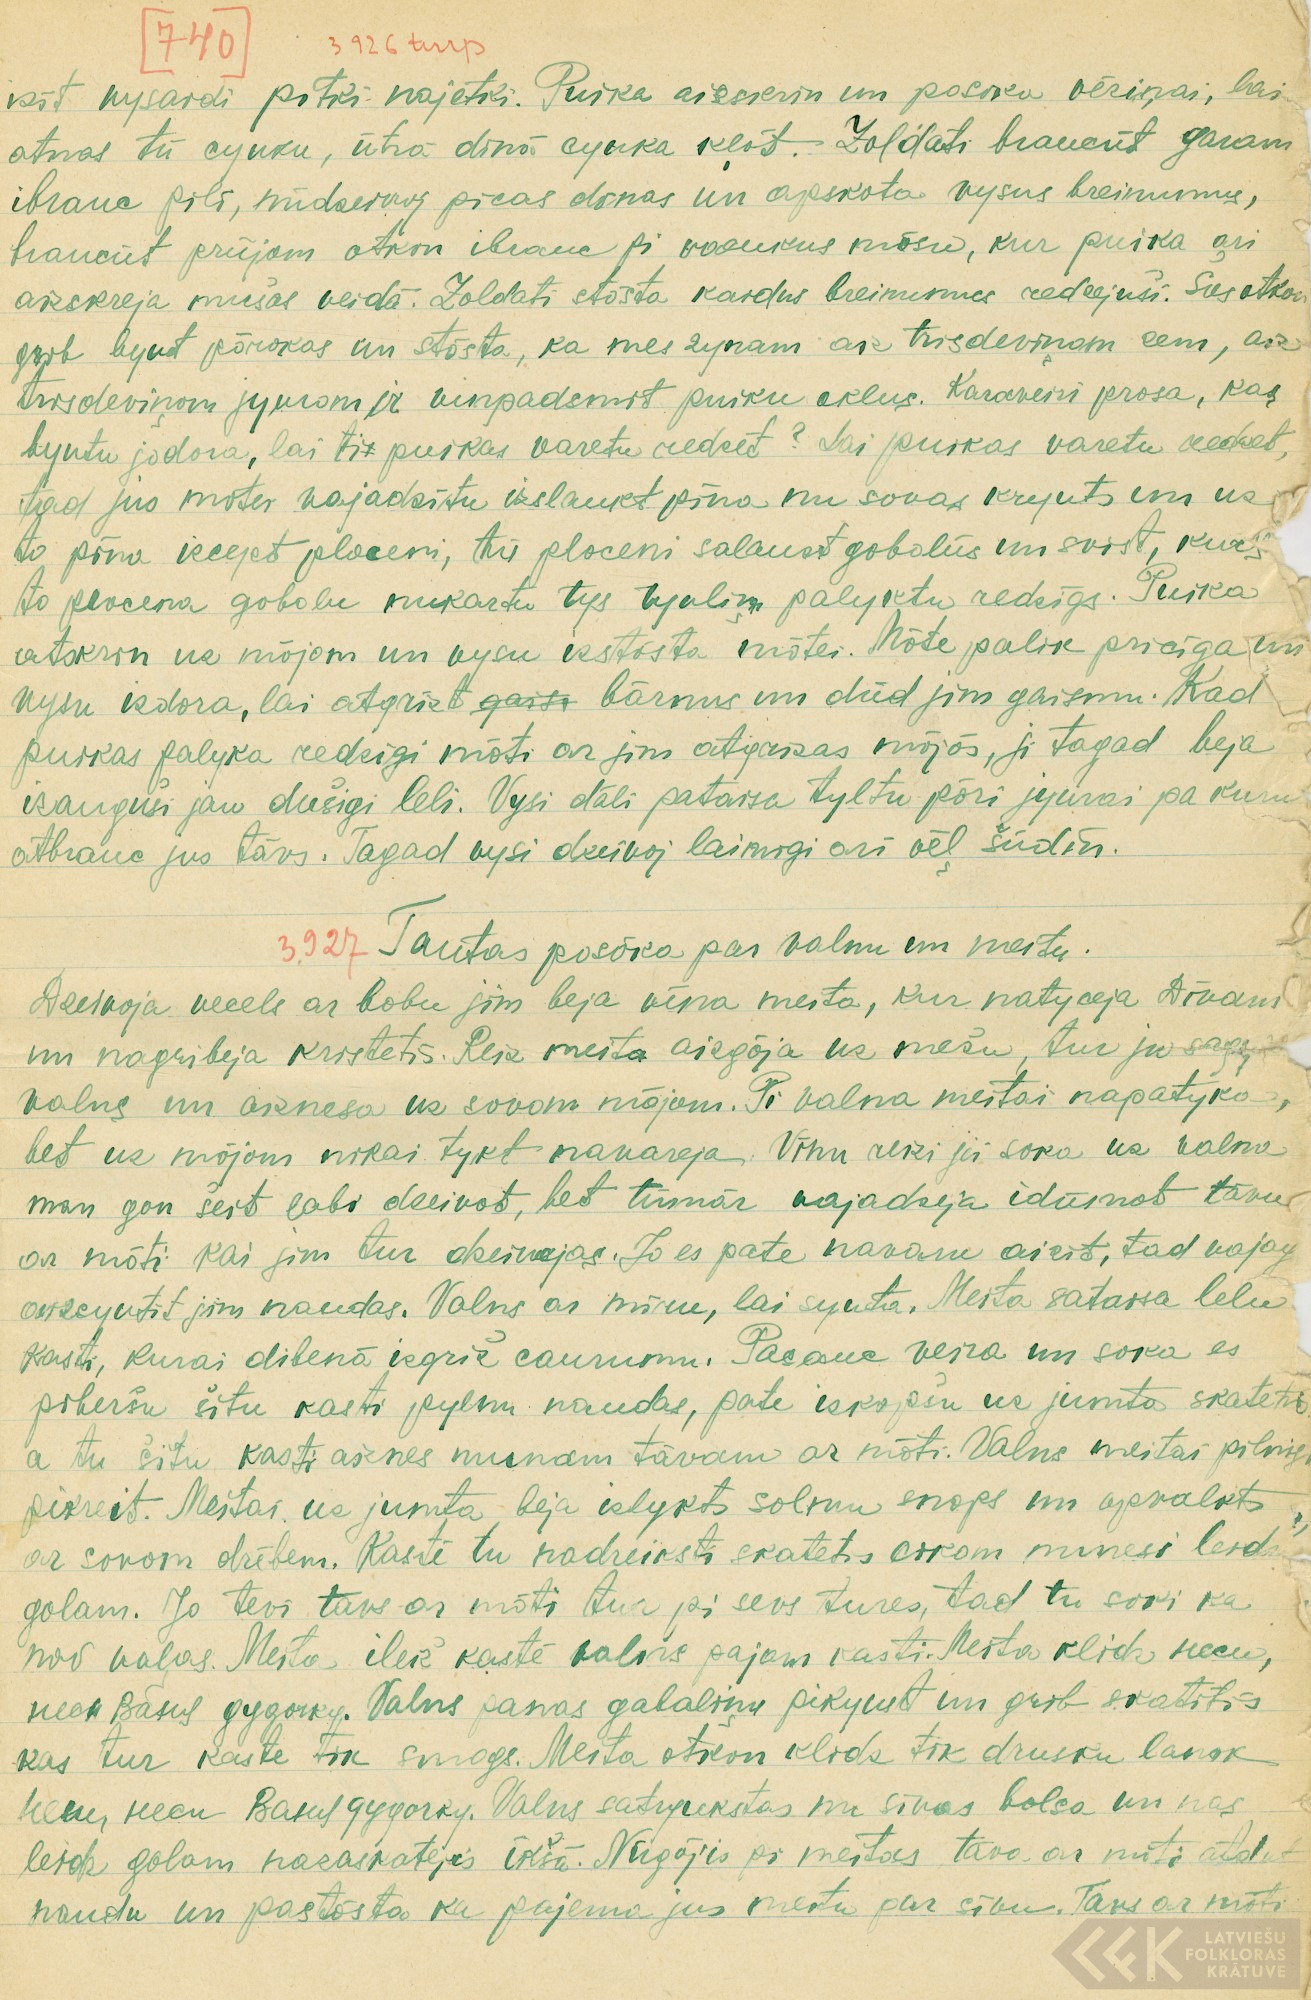 [740] 3926 turp
īsit vysaidi pitki-najetki. Puika aizskrin un posoka vēriņai, lai
atnas tū cyuku, ūtrā dinā cyuka klōt. Zoldati braucūt garam
ibrauc pilī, nūdzeivoj picas dinas un apskota vysus breinumus,
braucūt prūjom otkon ibrauc pi raudukus mōsu, kur puika ari
aizskreja mušas veidā. Zoldati stōsta kaidus breinumus redzejuši. Šos otkon
grib byut pōrokas un stōsta, ka mes zynam aiz trisdeviņom zem, aiz
trisdeviņom jyurom ir vinpadsmit puiku oklus. Karaveiri prosa, kas
byutu jōdora, lai tiz puikas varetu redzet? Lai puikas varetu redzet,
tad jus mōtei vajadzitu izslaukt pina nu sovas kryuts un uz
to pina izcept ploceni, tū ploceni salauzt gobolūs un svist, kurs
to plocena gobolu nukartu tys byuliņ palyktu redzigs. Puika
atskrin uz mōjom un vysu izstōsta mōtei. Mōte palik pricīga un
vysu izdora, lai atgrizt gaisi bārnus un dūd jim gaismu. Kad
puikas palyka redzigi mōti ar jim atgrizas mōjōs, ji tagad beja
izauguši jau dušigi leli. Vysi dāli pataisa tyltu pōri jyurai pa kuru
atbrauc jus tāvs. Tagad vysi dzeivoj laimigi ari vēļ šūdin.
3927 Tautas posōka par valnu un meitu.
Dzeivoja vecels ar bobu jim beja vina meita, kur naticeja Divam
un nagribeja kristetis. Reiz meita aizgōja uz mežu, tur ju sagū
valns un aiznesa uz sovom mōjom. Pi valna meitai napatyka,
bet uz mōjom nikai tykt navareja. Vinu reizi jei soka uz valna
man gon šeit labi dzeivot, bet tūmār vajadzeja idūmot tāvu
ar mōti kai jim tur dzeivojas. Jo es pate navaru aizit, tad vajag
aizcyutit jim naudas. Valns ar miru, lai syuta. Meita sataisa lelu
kasti, kurai dibenā izgriž caurumu. Pasauc veira un soka es
piberšu šitu kasti pylnu naudas, pate izkopšu uz jumta skatetis
a tu šitu kasti aiznes munam tāvam ar mōti. Valns meitai pilnigi
pikreit. Meitai uz jumta beja izlykts solmu snops un apvalkts
ar sovom drēbem. Kastē tu nadreiksti skatetis cikom nunesi leidz
golam. Jo tevi tāvs ar mōti tur pi sevs tures, tad tu soki ka
nov vaļas. Meita ilež kastē valns pajam kasti. Meita klidz несu,
несu Вашы gygorky. Valns panas gabaliņu pikyust un grib skatitis
kas tur kaste tik smogs. Meita otkon klidz tik drusku lanok
несu, несu Вашы gygorky. Valns satryukstas nu sivas bolsa un nas
leidz golam nazaskatejis ikšā. Nūgōjis pi meitas tāva ar mōti atdut
naudu un pastōsta ka pajema jus meitu par sivu. Tāvs ar mōti
LATVIEŠU
FOLKLORAS
KRĀTUVE